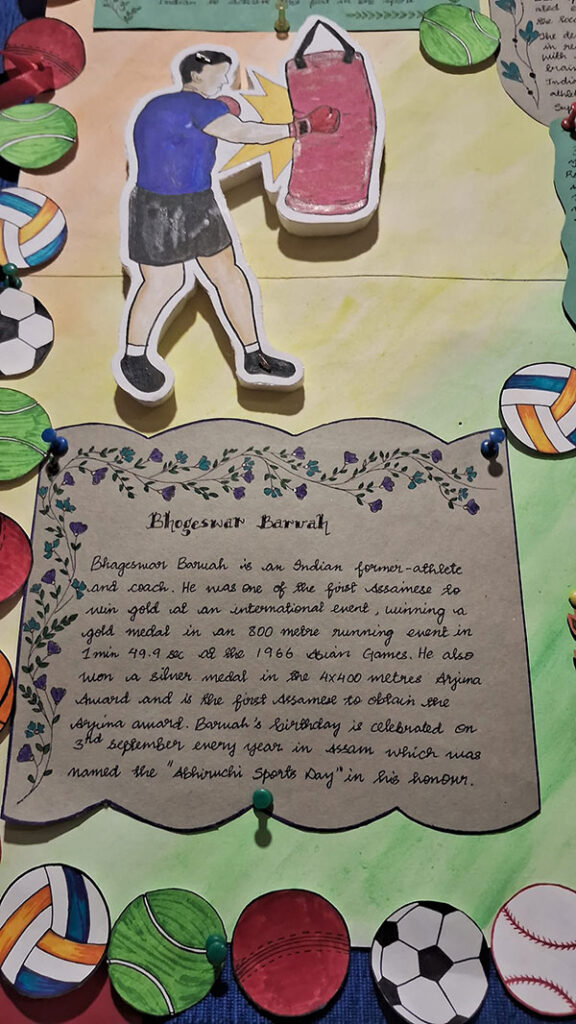 ated e
the soci
The de
in re
with
brain
India
athle
Sup
Bhogeswar Baruah
Bhogeswar Baruah is an Indian former-athlete
and coach. He was one of the first Assamese to
win gold at an international event, winning a
gold medal in an 800 metre running event in
1min 49.9 sec at the 1966 Asian Games. He also
won a silver medal in the 4x400 metres Arjuna
Award and is the first Assamese to obtain the
Arjuna award. Baruah's birthday is celebrated on
3rd september every year in Assam which was
named the "Abhiruchi Sports Day" in his honour.